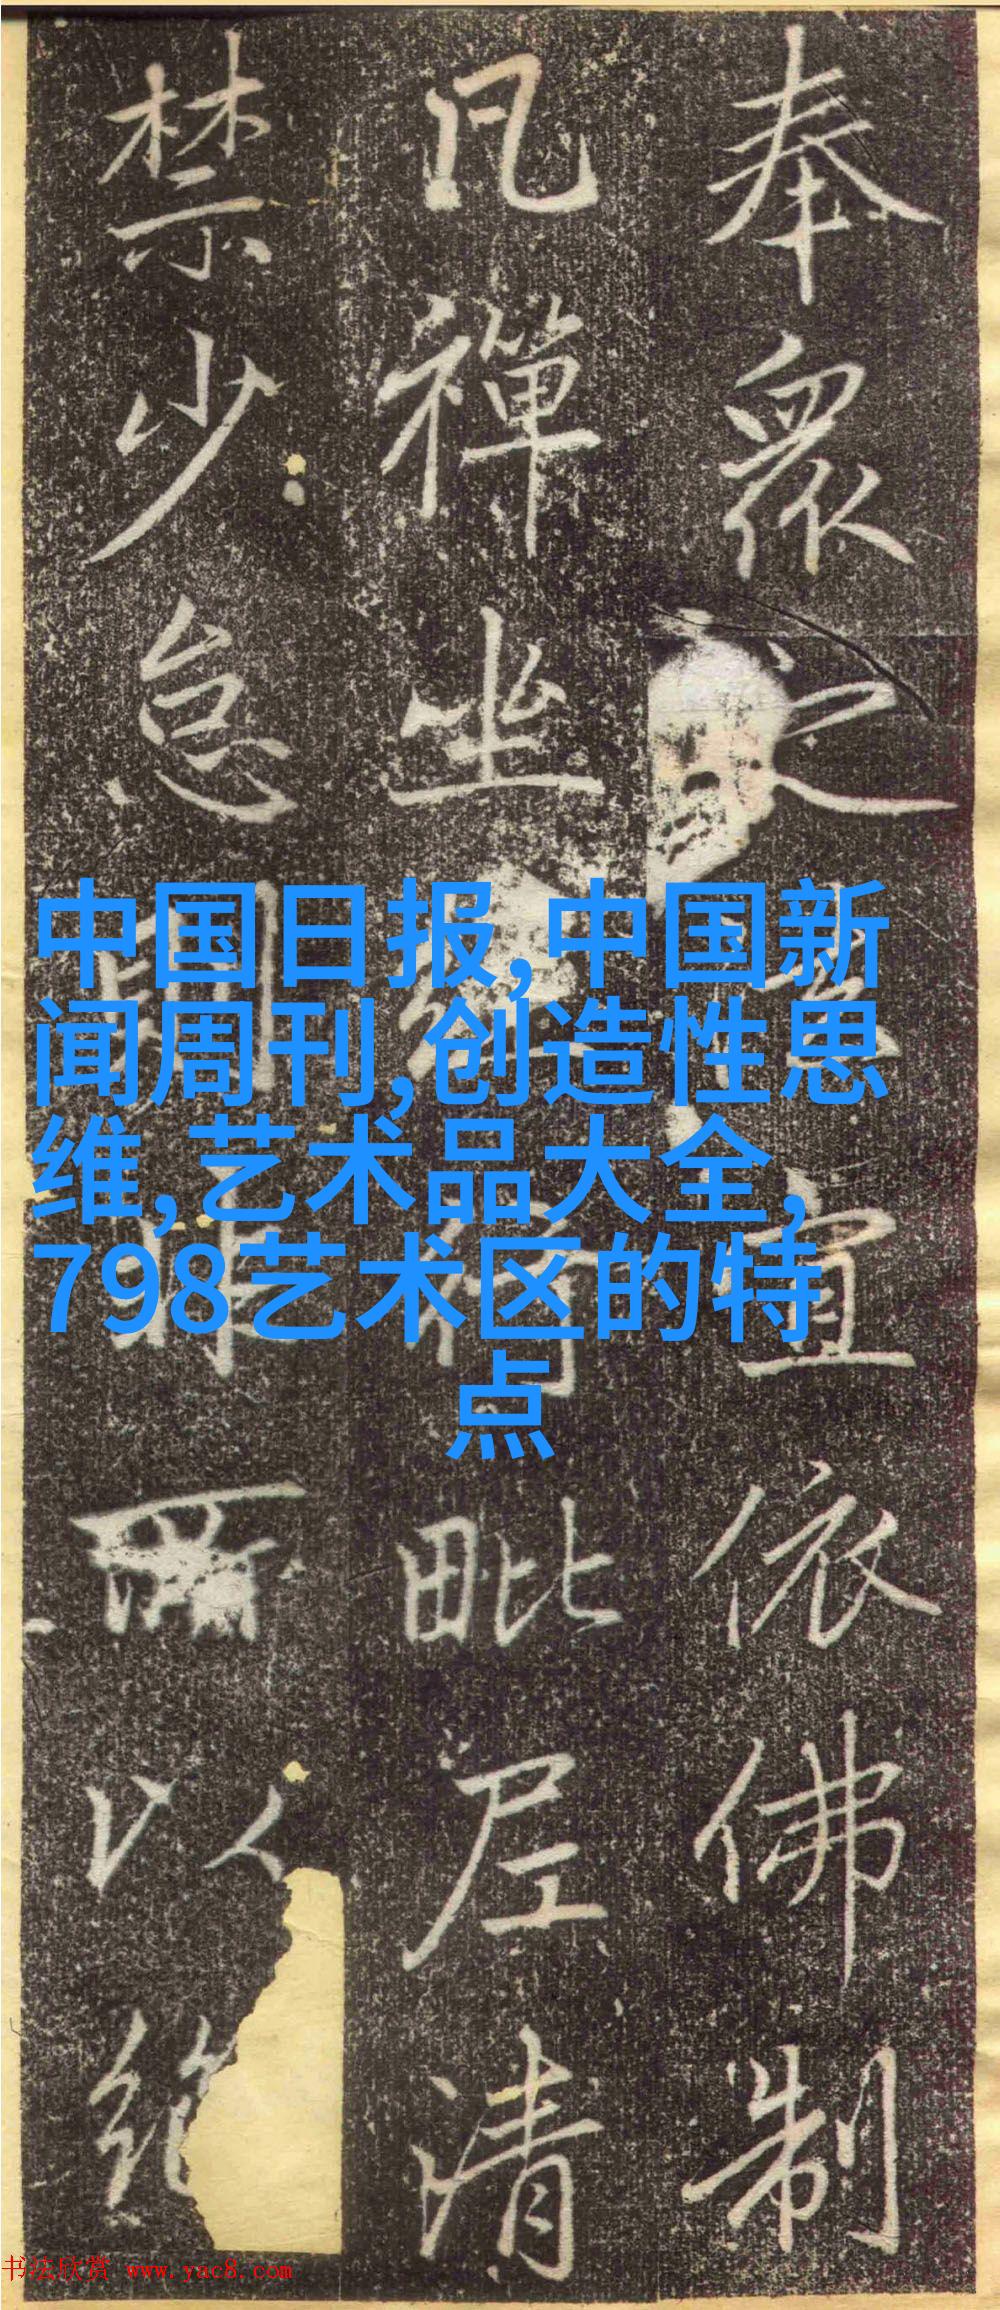 奉眾宜依佛制
凡禪坐毗尼清
禁少怠則非以絕
中国日报,中国新
闻周刊,创造性思
维,艺术品大全,
798艺术区的特
点
书法欣赏 www.yac8.com